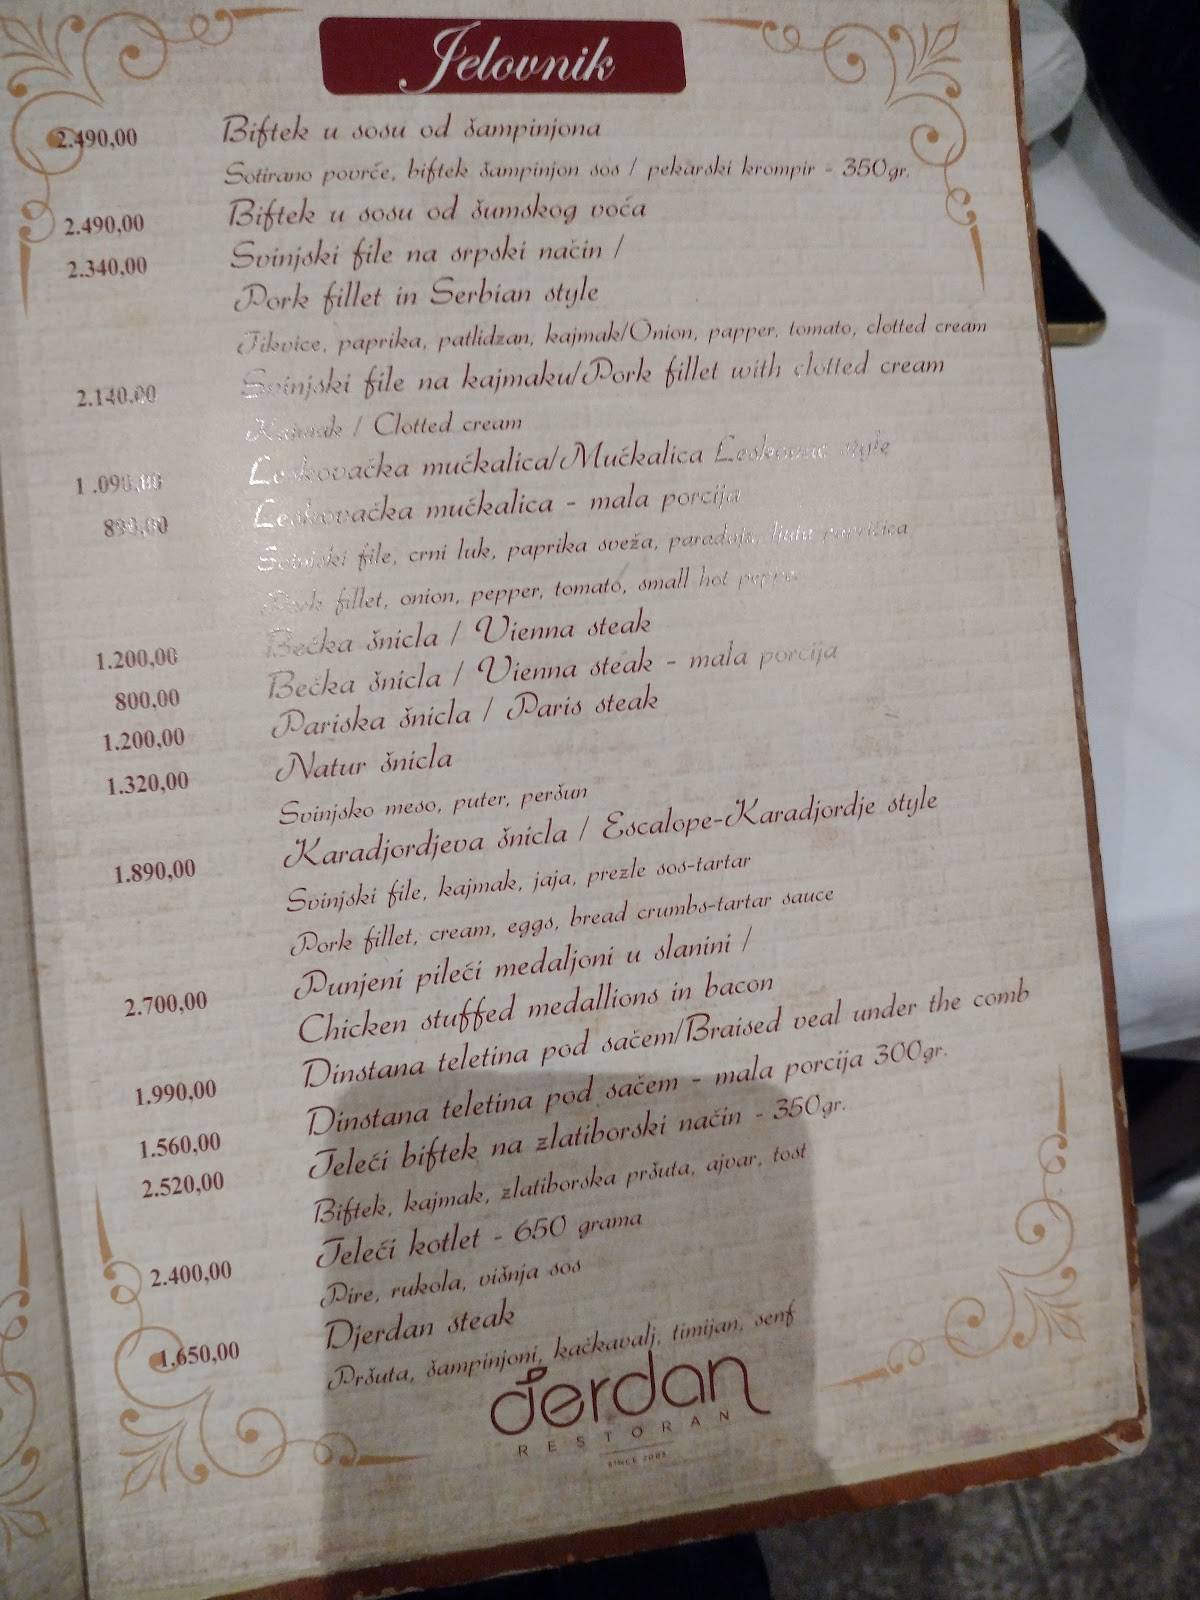 Jelovnik
2.490,00 Biftek u sosu od šampinjona
Sotirano povrče, biftek šampinjon sos / pekarski krompir - 350gr.
2.490,00 Biftek u sosu od šumskog voća
2.340,00 Svinjski file na srpski način /
Pork fillet in Serbian style
Tikvice, paprika, patlidzan, kajmak/Onion, papper, tomato, clotted cream
2.140,00 Svinjski file na kajmaku/Pork fillet with clotted cream
Kajmak / Clotted cream
1 .090,00 Leskovačka mućkalica/Mućkalica Leskovac style
Leskovačka mućkalica - mala porcija
Svinjski file, crni luk, paprika sveža, paradajz, ljuta papričica
Pork fillet, onion, pepper, tomato, small hot pepper
1.200,00 Bečka šnicla / Vienna steak
800,00 Bečka šnicla / Vienna steak - mala porcija
1.200,00 Pariska šnicla / Paris steak
1.320,00 Natur šnicla
Svinjsko meso, puter, peršun
1.890,00 Karadjordjeva šnicla / Escalope-Karadjordje style
Svinjski file, kajmak, jaja, prezle sos-tartar
Pork fillet, cream, eggs, bread crumbs-tartar sauce
2.700,00 Punjeni pileći medaljoni u slanini /
Chicken stuffed medallions in bacon
1.990,00 Dinstana teletina pod sačem/Braised veal under the comb
1.560,00 Dinstana teletina pod sačem - mala porcija 300gr.
2.520,00 Teleći biftek na zlatiborski način - 350gr.
Biftek, kajmak, zlatiborska pršuta, ajvar, tost
2.400,00 Teleći kotlet - 650 grama
Pire, rukola, višnja sos
1.650,00 Djerdan steak
Pršuta, šampinjoni, kačkavalj, timijan, senf
đerdan
RESTORAN
SINCE